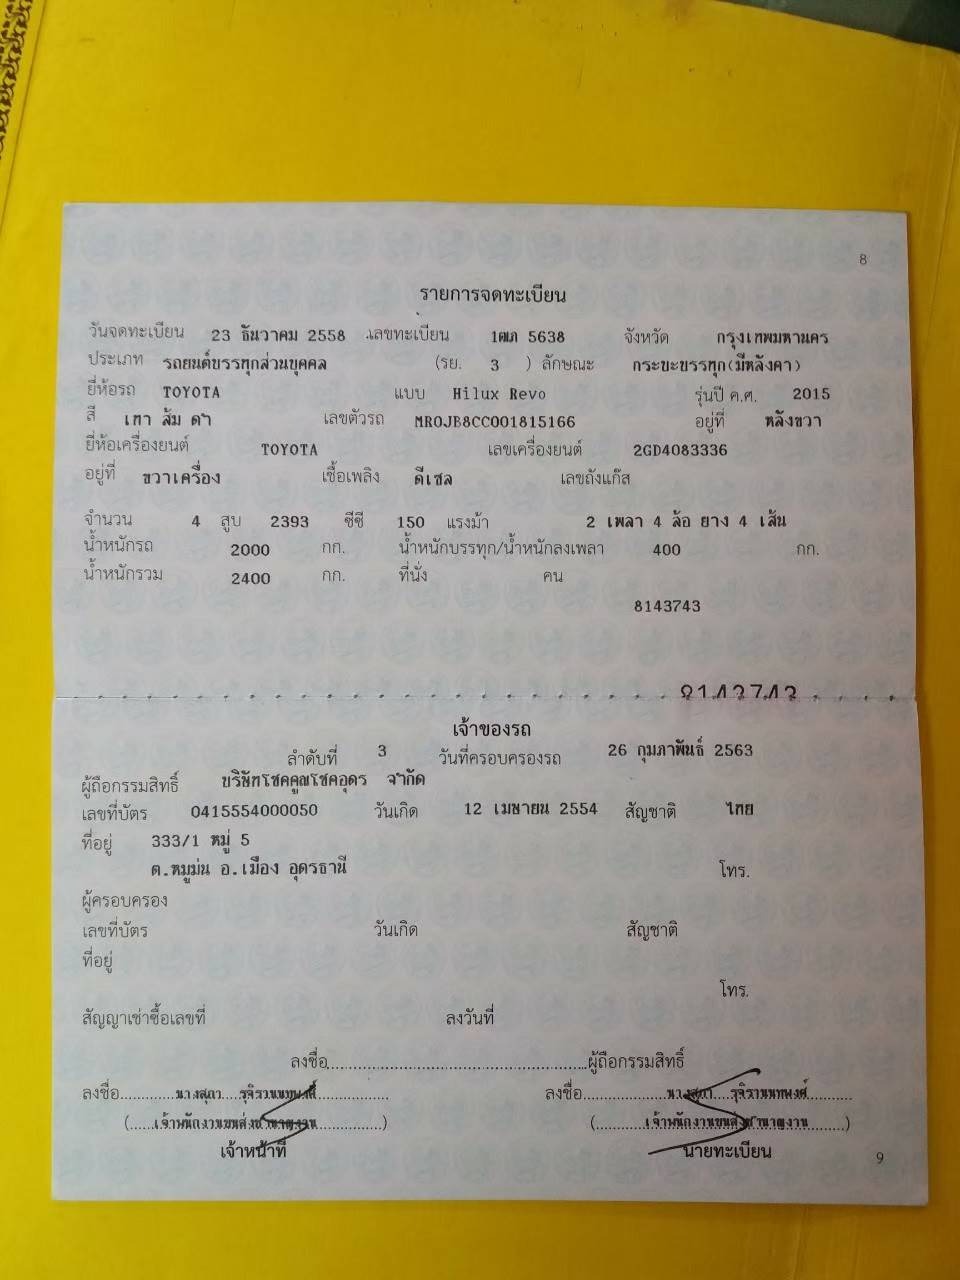 8
รายการจดทะเบียน
วันจดทะเบียน 23 ธันวาคม 2558 เลขทะเบียน 1ฒภ 5638 จังหวัด กรุงเทพมหานคร
ประเภท รถยนต์บรรทุกส่วนบุคคล (รย. 3 ) ลักษณะ กระบะบรรทุก(มีหลังคา)
ยี่ห้อรถ TOYOTA แบบ Hilux Revo รุ่นปี ค.ศ. 2015
สี เทา ส้ม ดำ เลขตัวรถ MR0JB8CC001815166 อยู่ที่ หลังขวา
ยี่ห้อเครื่องยนต์ TOYOTA เลขเครื่องยนต์ 2GD4083336
อยู่ที่ ขวาเครื่อง เชื้อเพลิง ดีเซล เลขถังแก๊ส
จำนวน 4 สูบ 2393 ซีซี 150 แรงม้า 2 เพลา 4 ล้อ ยาง 4 เส้น
น้ำหนักรถ 2000 กก. น้ำหนักบรรทุก/น้ำหนักลงเพลา 400 กก.
น้ำหนักรวม 2400 กก. ที่นั่ง คน
8143743
8143743
เจ้าของรถ
ลำดับที่ 3 วันที่ครอบครองรถ 26 กุมภาพันธ์ 2563
ผู้ถือกรรมสิทธิ์ บริษัทโชคคูณโชคอุดร จำกัด
เลขที่บัตร 0415554000050 วันเกิด 12 เมษายน 2554 สัญชาติ ไทย
ที่อยู่ 333/1 หมู่ 5
ต.หมูม่น อ.เมือง อุดรธานี โทร.
ผู้ครอบครอง
เลขที่บัตร วันเกิด สัญชาติ
ที่อยู่
โทร.
สัญญาเช่าซื้อเลขที่ ลงวันที่
ลงชื่อ......ผู้ถือกรรมสิทธิ์
ลงชื่อ......นางสุภา....รุจิรานนทพงศ์...... ลงชื่อ......นางสุภา....รุจิรานนทพงศ์......
(......เจ้าพนักงานขนส่งชำนาญงาน......) (......เจ้าพนักงานขนส่งชำนาญงาน......)
เจ้าหน้าที่ นายทะเบียน
9